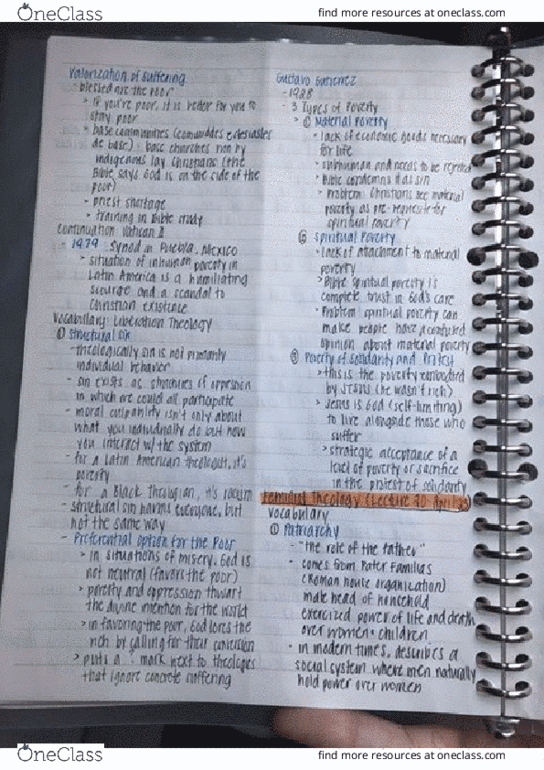 OneClass
find more resources at oneclass.com
Valorization of Suffering
- "blessed are the poor"
> if you're poor, it is better for you to
stay poor
> base communities (comunidades eclesiales
de base): base churches run by
indigenous lay Christians (the
Bible says God is on the side of the
poor)
> priest shortage
> training in Bible study
Continuation: Vatican II
- 1979: Synod in Puebla, Mexico
> situation of inhuman poverty in
Latin America is a humiliating
scourge and a scandal to
Christian existence
Vocabulary: Liberation Theology
① Structural Sin
- theologically sin is not primarily
individual behavior
- sin exists as structures of oppression
in which we could all participate
- moral culpability isn't only about
what you individually do but how
you interact w/ the system
- for a Latin American theologian, it's
poverty
- for a Black Theologian, it's racism
- structural sin harms everyone, but
not the same way
- Preferential Option for the Poor
> in situations of misery, God is
not neutral (favors the poor)
> poverty and oppression thwart
the divine intention for the world
> in favoring the poor, God loves the
rich by calling for their conversion
> puts a ? mark next to theologies
that ignore concrete suffering
Gustavo Gutierrez
- 1928
- 3 Types of Poverty
> ① Material Poverty
> lack of economic goods necessary
for life
> subhuman and needs to be rejected
> Bible condemns it as sin
> Problem: Christians see material
poverty as pre-requisite for
spiritual poverty
② Spiritual Poverty
> lack of attachment to material
poverty
> Bible: spiritual poverty is
complete trust in God's care
> Problem: spiritual poverty can
make people have a confused
opinion about material poverty
③ Poverty of Solidarity and Protest
> this is the poverty embodied
by Jesus (he wasn't rich)
> Jesus is God (self-limiting)
to live alongside those who
suffer
> strategic acceptance of a
level of poverty or sacrifice
in the protest of solidarity
Feminist Theology (Lecture 20
Vocabulary
① Patriarchy
- "the role of the father"
- comes from Pater Familias
(Roman house organization)
male head of household
exercised power of life and death
over women + children
- in modern times, describes a
social system where men naturally
hold power over women
OneClass
find more resources at oneclass.com